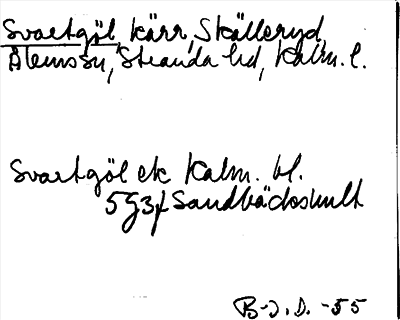 Svartgöl, kärr, Skälleryd,
Ålems sn, Stranda hd, Kalm. l.
Svartgöl ek Kalm. bl.
5g3f Sandbäckshult
B-J. D. -55